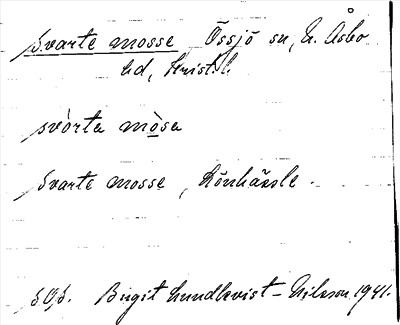 Svarte mosse Össjö sn, N. Åsbo
hd, Krist. l.
svòrta mòsa
Svarte mosse, Lönhässle.
Birgit Lundkvist-Nilsson 1941.